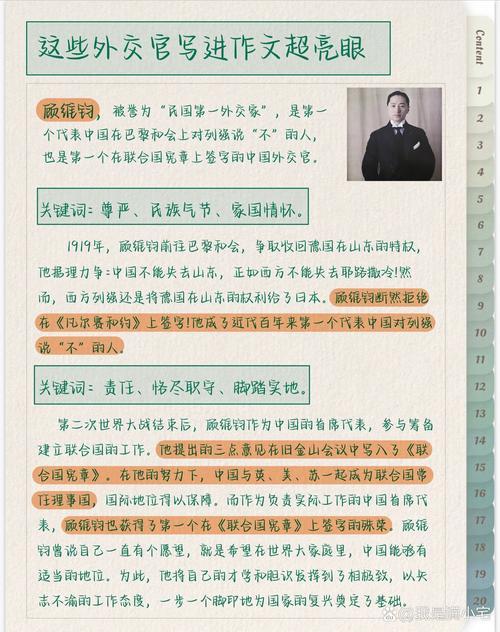 这些外交官写进作文超亮眼
Content
顾维钧，被誉为“民国第一外交家”，是第一
个代表中国在巴黎和会上对列强说“不”的人，
也是第一个在联合国宪章上签字的中国外交官。
关键词：尊严、民族气节、家国情怀。
1919年，顾维钧前往巴黎和会，争取收回德国在山东的特权，
他据理力争：中国不能失去山东，正如西方不能失去耶路撒冷！然
而，西方列强还是将德国在山东的权利给了日本。顾维钧断然拒绝
在《凡尔赛和约》上签字！他成了近代百年来第一个代表中国对列强
说“不”的人。
关键词：责任、恪尽职守、脚踏实地。
第二次世界大战结束后，顾维钧作为中国的首席代表，参与筹备
建立联合国的工作。他提出的三点意见在旧金山会议中写入了《联
合国宪章》。在他的努力下，中国与英、美、苏一起成为联合国常
任理事国，国际地位得以保障。而作为负责实际工作的中国首席代
表，顾维钧也获得了第一个在《联合国宪章》上签字的殊荣。顾维
钧曾说自己一直有个愿望，就是希望在世界大家庭里，中国能够有
适当的地位。为此，他将自己的才学和胆识发挥到了相极致，以矢
志不渝的工作态度，一步一个脚印地为国家的复兴奠定了基础。
1
2
3
4
5
6
7
8
9
10
11
12
13
14
15
16
17
18
19
20